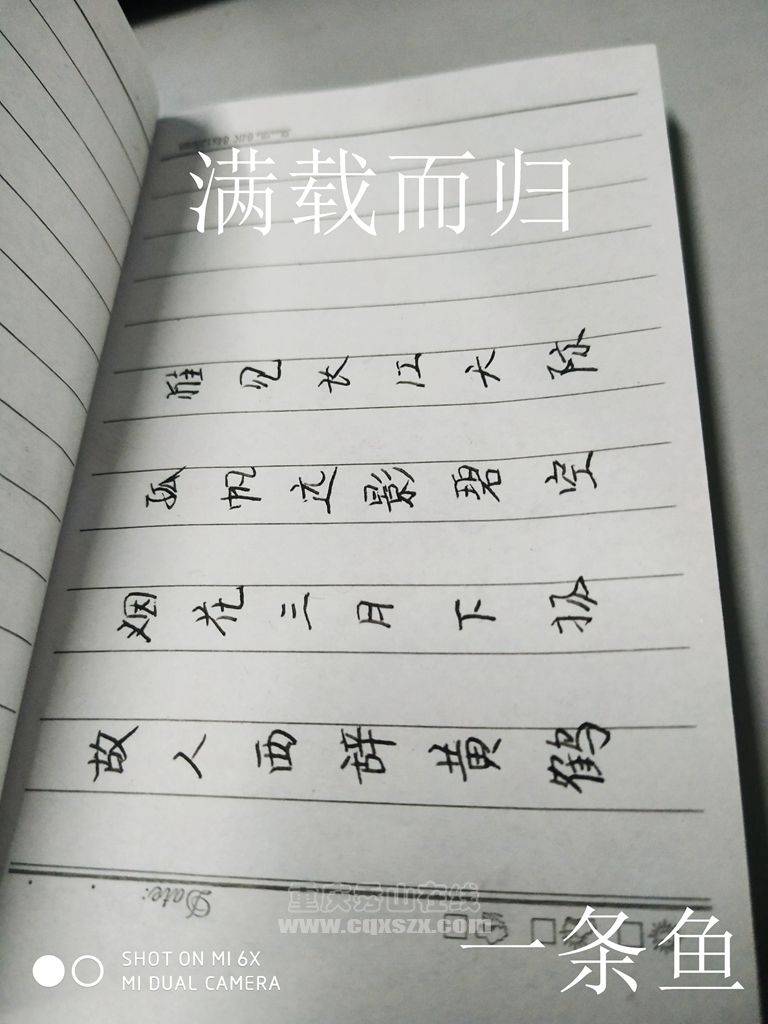 满载而归
惟见长江天际
孤帆远影碧空
烟花三月下扬
故人西辞黄鹤
Date:
重庆秀山在线
www.cqxszx.com
一条鱼
SHOT ON MI 6X
MI DUAL CAMERA